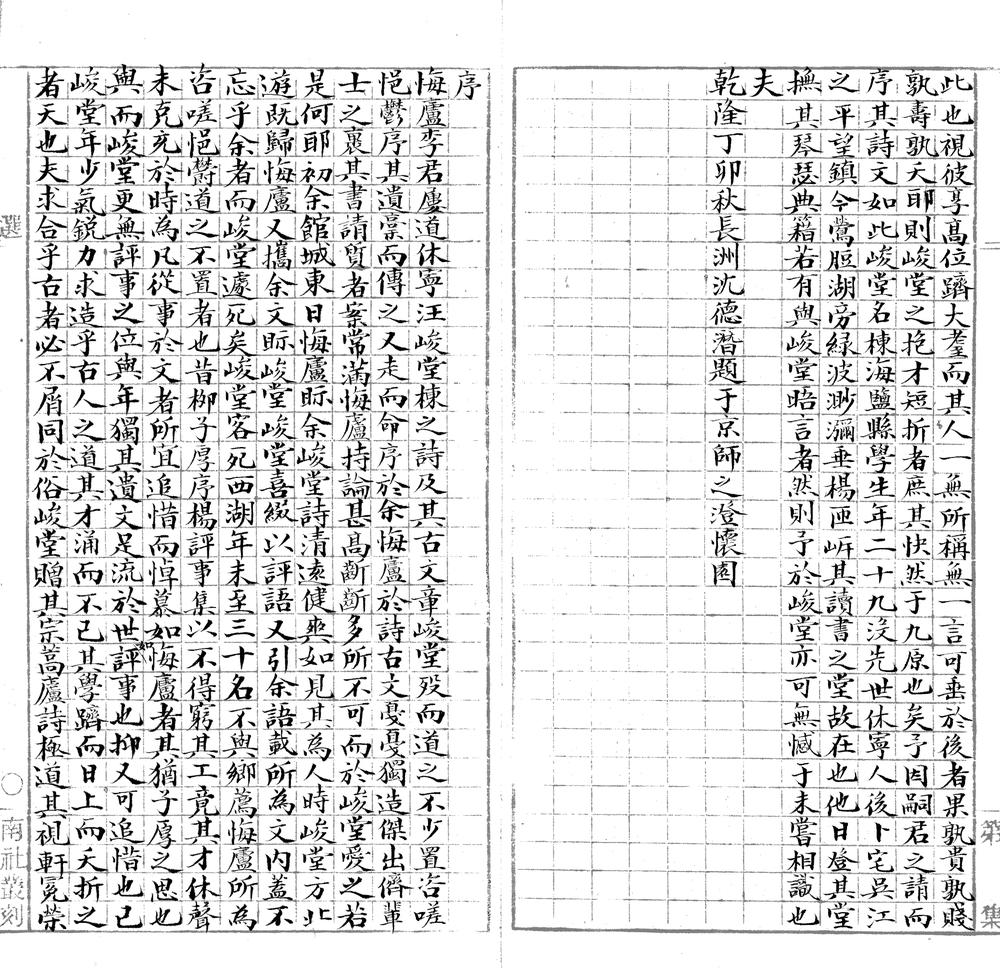 此也視彼享高位躋大耋而其人一無所稱無一言可垂於後者果孰貴孰賤
孰壽孰夭耶則峻堂之抱才短折者庶其快然于九原也矣予因嗣君之請而
序其詩文如此峻堂名棟海鹽縣學生年二十九沒先世休寧人後卜宅吳江
之平望鎮今鶯脰湖旁綠波渺瀰垂楊匝岍其讀書之堂故在也他日登其堂
撫其琴瑟典籍若有與峻堂晤言者然則予於峻堂亦可無憾于未嘗相識也
夫
乾隆丁卯秋長洲沈德潛題于京師之澄懷園
序
悔廬李君屢道休寧汪峻堂棟之詩及其古文章峻堂歿而道之不少置咨嗟
悒鬱序其遺稾而傳之又走而命序於余悔廬於詩古文戛戛獨造傑出儕輩
士之裹其書請質者案常滿悔廬持論甚高斷斷多所不可而於峻堂愛之若
是何耶初余館城東日悔廬眎余峻堂詩清遠健爽如見其為人時峻堂方北
遊既歸悔廬又攜余文眎峻堂峻堂喜綴以評語又引余語載所為文內蓋不
忘乎余者而峻堂遽死矣峻堂客死西湖年未至三十名不與鄉薦悔廬所為
咨嗟悒鬱道之不置者也昔柳子厚序楊評事集以不得窮其工竟其才休聲
未克充於時為凡從事於文者所宜追惜而悼慕如悔廬者其猶子厚之思也
與而峻堂更無評事之位與年獨其遺文足流於世評事也抑又可追惜也已
峻堂年少氣銳力求造乎古人之道其才涌而不已其學躋而日上而夭折之
者天也夫求合乎古者必不屑同於俗峻堂贈其宗嵩廬詩極道其視軒冕榮
選
○
南社叢刻
集